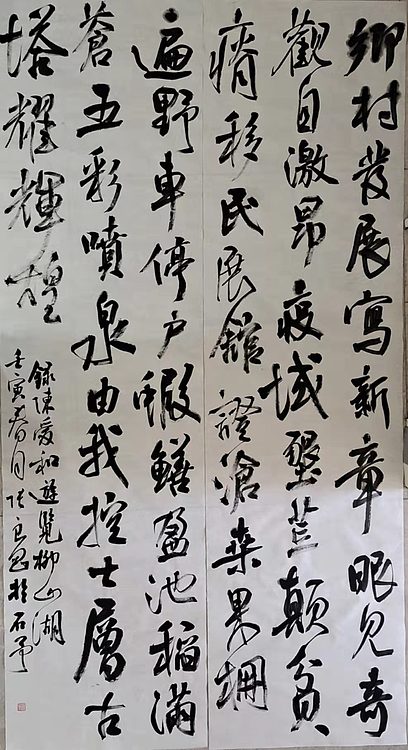 鄉村發展寫新章眼見奇
觀自激昂疫域墾荒顛貧
瘠移民展館證滄桑果柵
遍野車停戶蝦鱔盈池稻滿
蒼五彩噴泉由我控七層古
塔耀輝煌
錄陳愛和遊覽柳山湖
壬寅春月張良於石